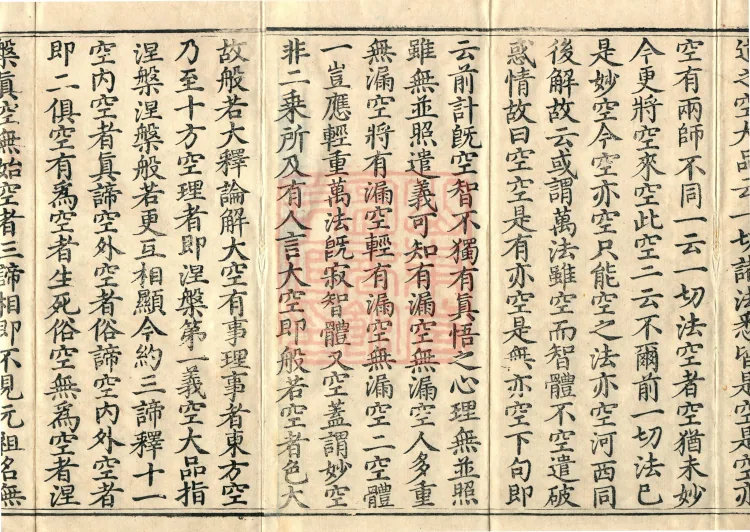 道之空大品云一切諸法悉皆是空是空亦
空有兩師不同一云一切法空者空猶未妙
今更將空來空此空二云不爾前一切法已
是妙空今空亦空只能空之法亦空河西同
後解故云或謂萬法雖空而智體不空遣破
惑情故曰空空是有亦空是無亦空下句即
云前計旣空智不獨有眞悟之心理無並照
雖無並照遣義可知有漏空無漏空人多重
無漏空將有漏空輕有漏空無漏空二空體
一豈應輕重萬法旣寂智體又空蓋謂妙空
非二乘所及有人言大空即般若空者色大
故般若大釋論解大空有事理事者東方空
乃至十方空理者即涅槃第一義空大品指
涅槃涅槃般若更互相顯今約三諦釋十一
空內空者眞諦空外空者俗諦空內外空者
即二俱空有爲空者生死俗空無爲空者涅
槃眞空無始空者三諦相即不見元祖名無